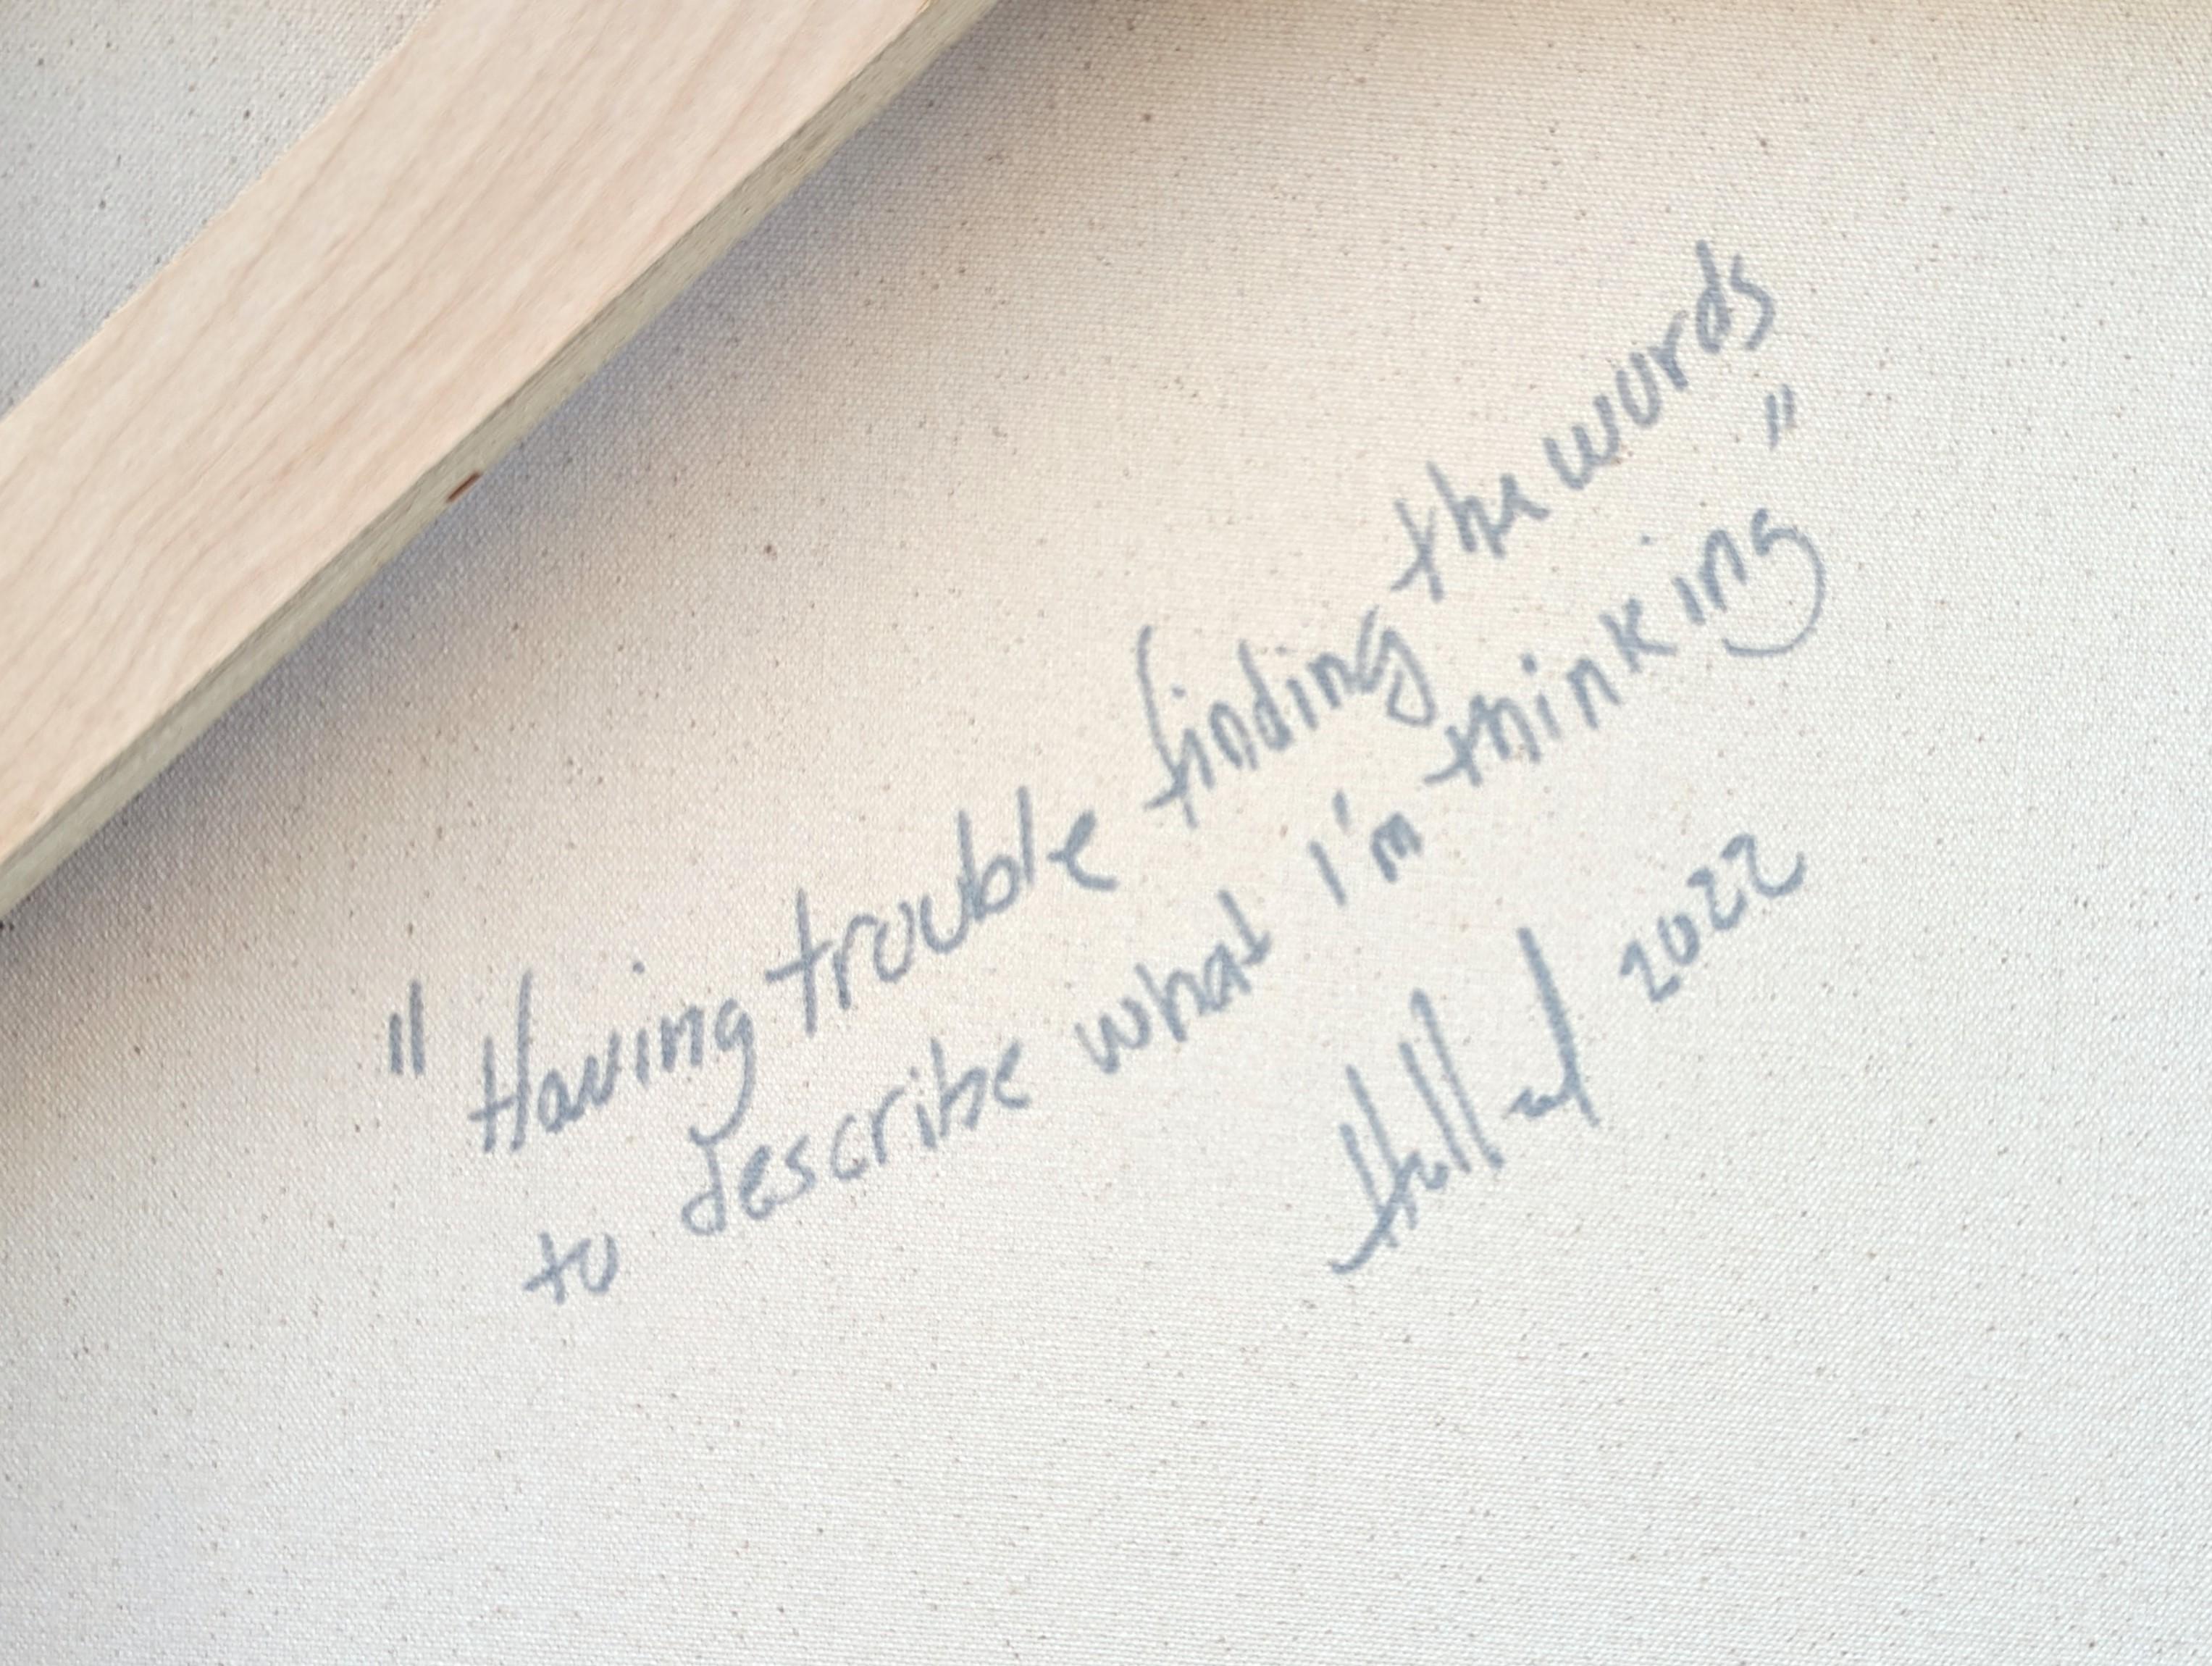 "Having trouble finding the words
to describe what I'm thinking"
Holland 2022